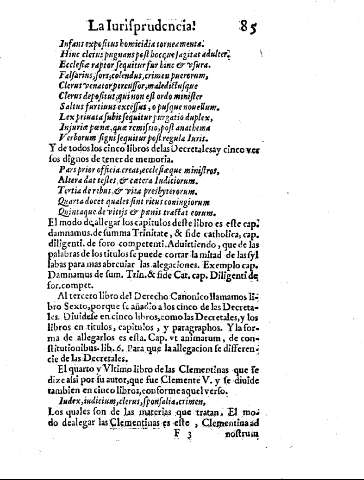 La Iurisprudencia. 85
Infans expositus homicidia torneamenta.
Hinc clerus pugnans post hocque sagitat adulter.
Ecclesiæ raptor sequitur fur hinc & vsura.
Falsarius, sors, colendus, crimen puerorum,
Clerus venator percussor, maledictusque
Clerus depositus, qui non est ordo minister
Saltus furtiuus excessus, o pusque nouellum.
Lex priuata subit sequitur purgatio duplex,
Iniuriæ pœnæ, quæ remissio, post anathema
Verborum signi sequitur post regula Iuris.
Y de todos los cinco libros delas Decretales ay cinco ver
sos dignos de tener de memoria.
Pars prior officia creat, ecclesiæque ministros,
Altera dat testes, & cætera Iudiciorum.
Tertia de rebus, & vita presbyterorum.
Quarta docet quales sint ritus coniugiorum
Quintaque de vitijs & pœnis tractat eorum.
El modo de alegar los capitulos deste libro es este cap.
damnamus. de summa Trinitate, & fide catholica, cap.
diligenti. de foro competenti. Aduirtiendo, que de las
palabras de los titulos se puede cortar la mitad de las syl
labas para mas abreuiar las alegaciones. Exemplo cap.
Damnamus de sum. Trin. & fide Cat. cap. Diligenti de
for. compet.
Al tercero libro del Derecho Canonico llamamos li-
bro Sexto, porque se añadio a los cinco de las Decreta-
les. Diuidese en cinco libros, como las Decretales, y los
libros en titulos, capitulos, y paragraphos. Y la for-
ma de allegarlos es esta. Cap. vt animarum, de con-
stitutionibus. lib. 6. Para que la allegacion se differen-
cie de las Decretales.
El quarto y Vltimo libro de las Clementinas que se
dize assi por su autor, que fue Clemente V. y se diuide
tambien en cinco libros, conforme aquel verso.
Iudex, iudicium, clerus, sponsalia, crimen.
Los quales son de las materias que tratan. El mo-
do dealegar las Clementinas es este, Clementina ad
F 3 nostrum